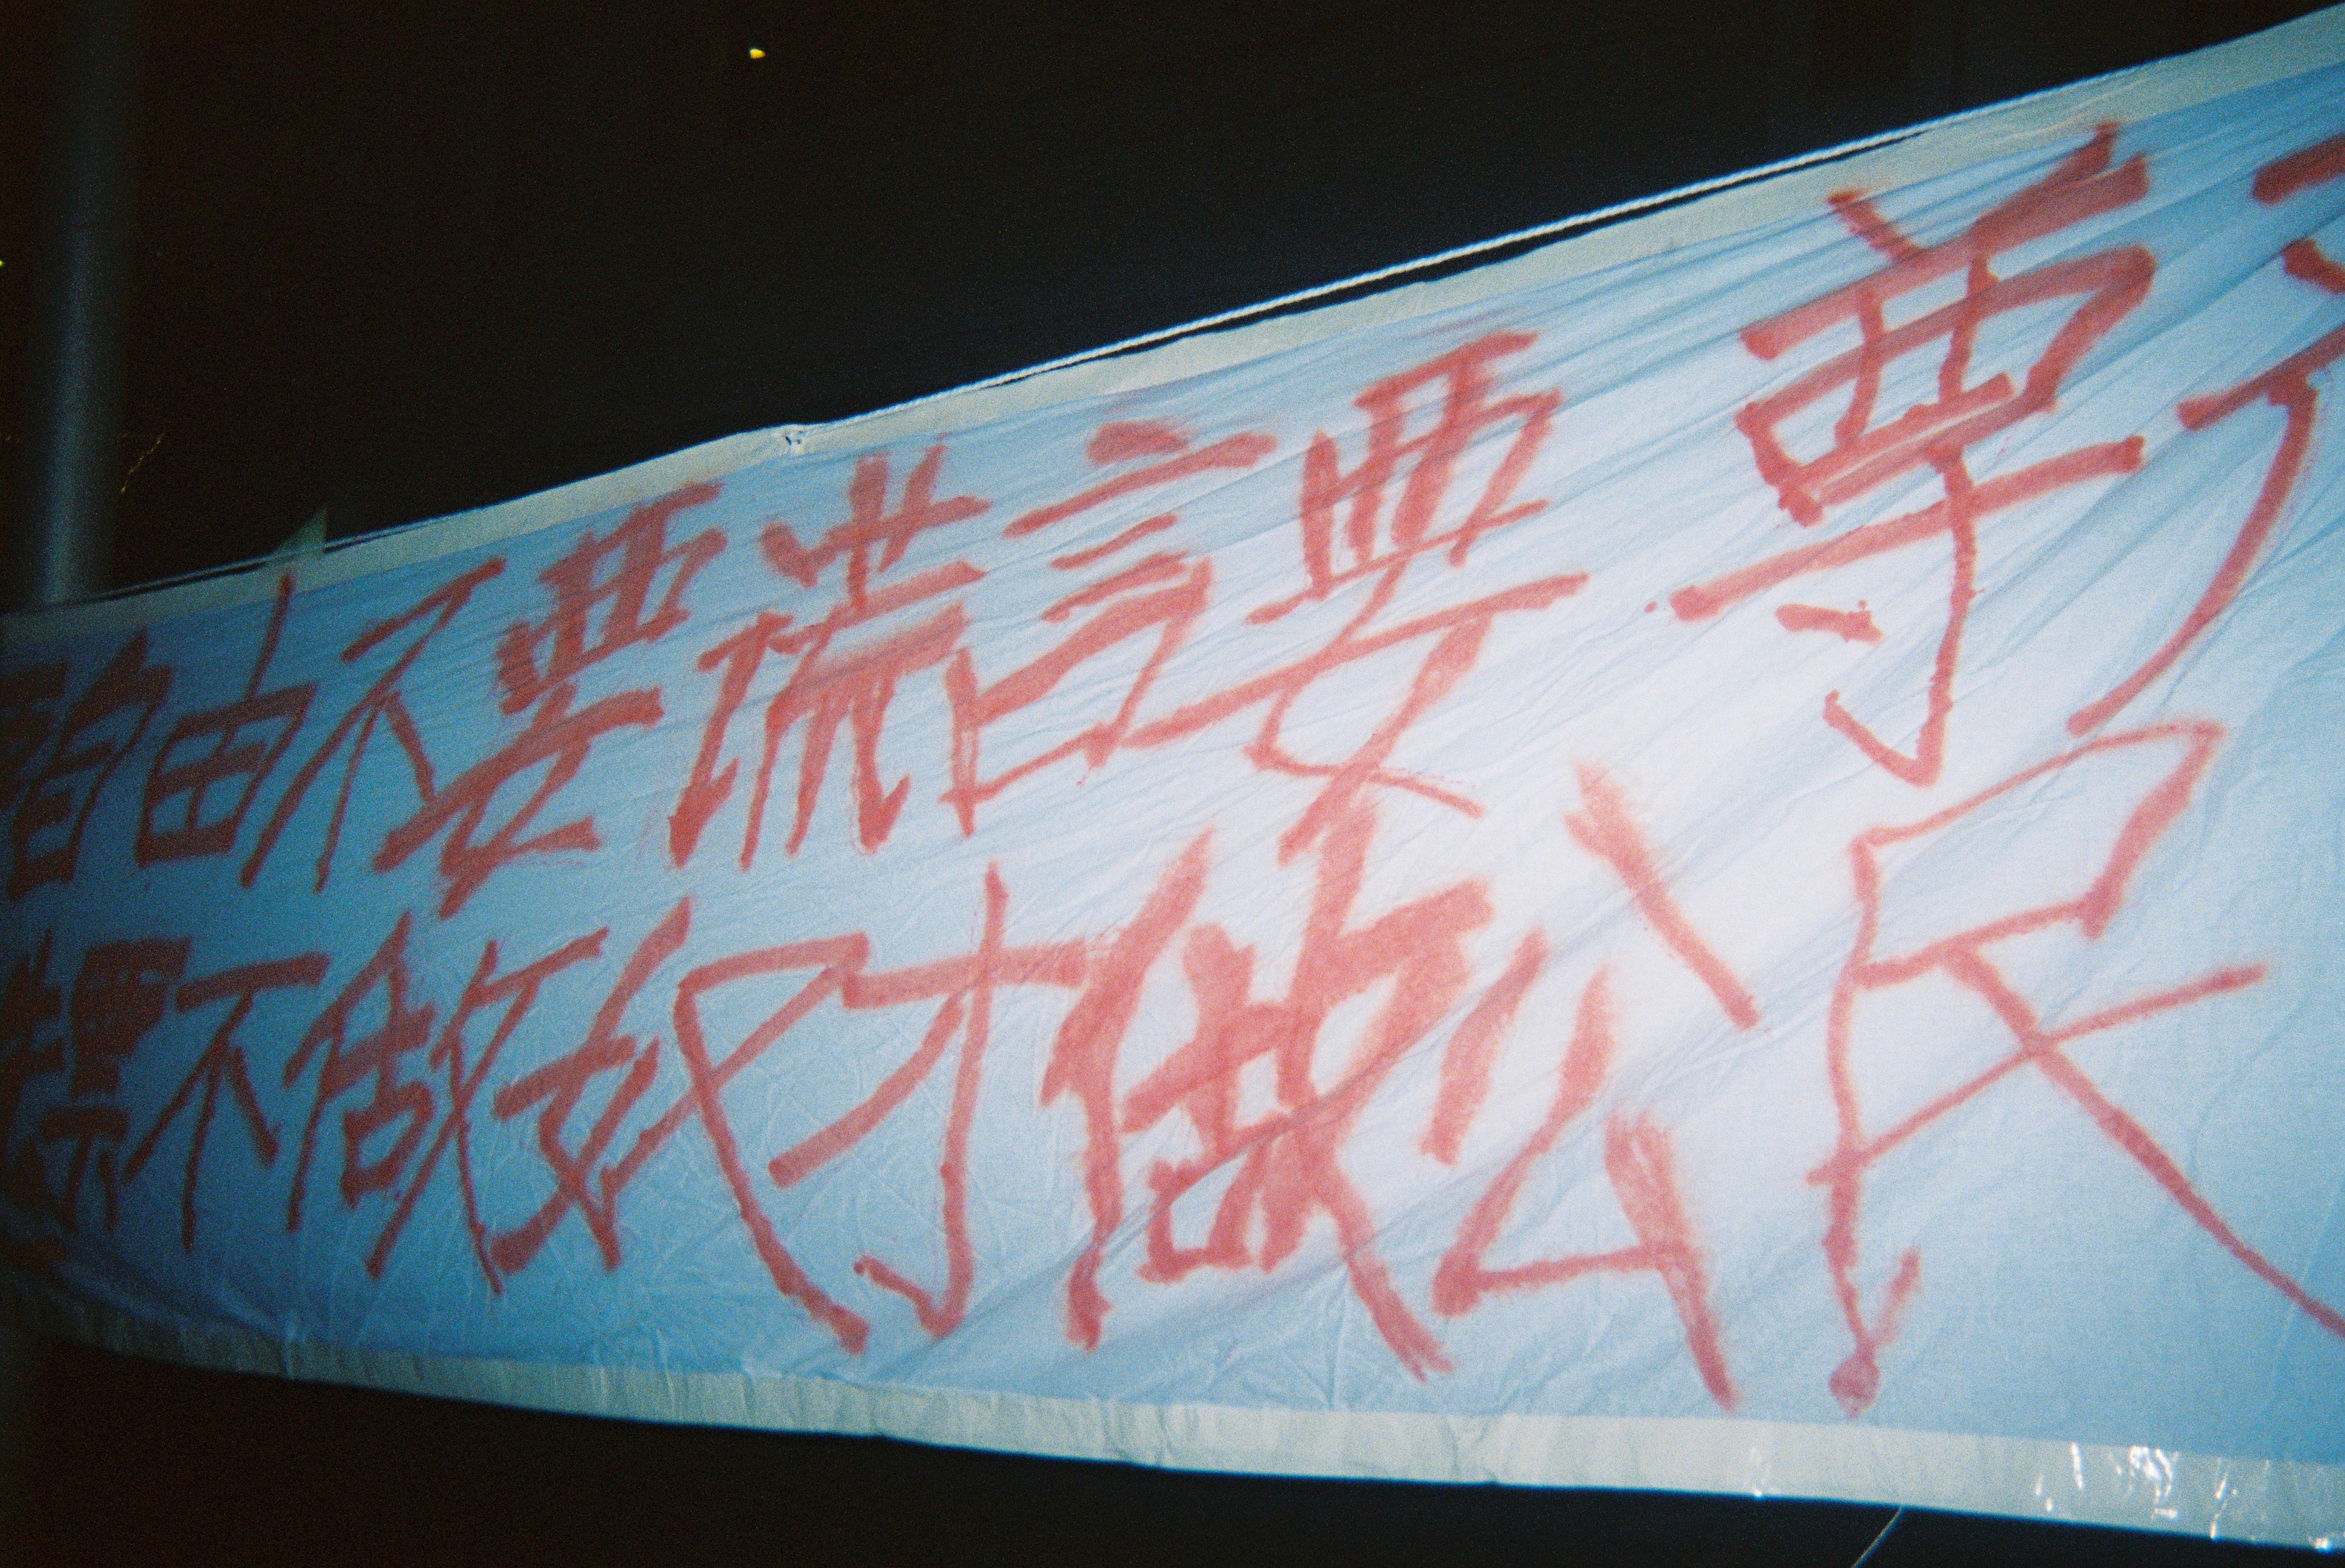 自由不要谎言要尊
票不做奴才做公民